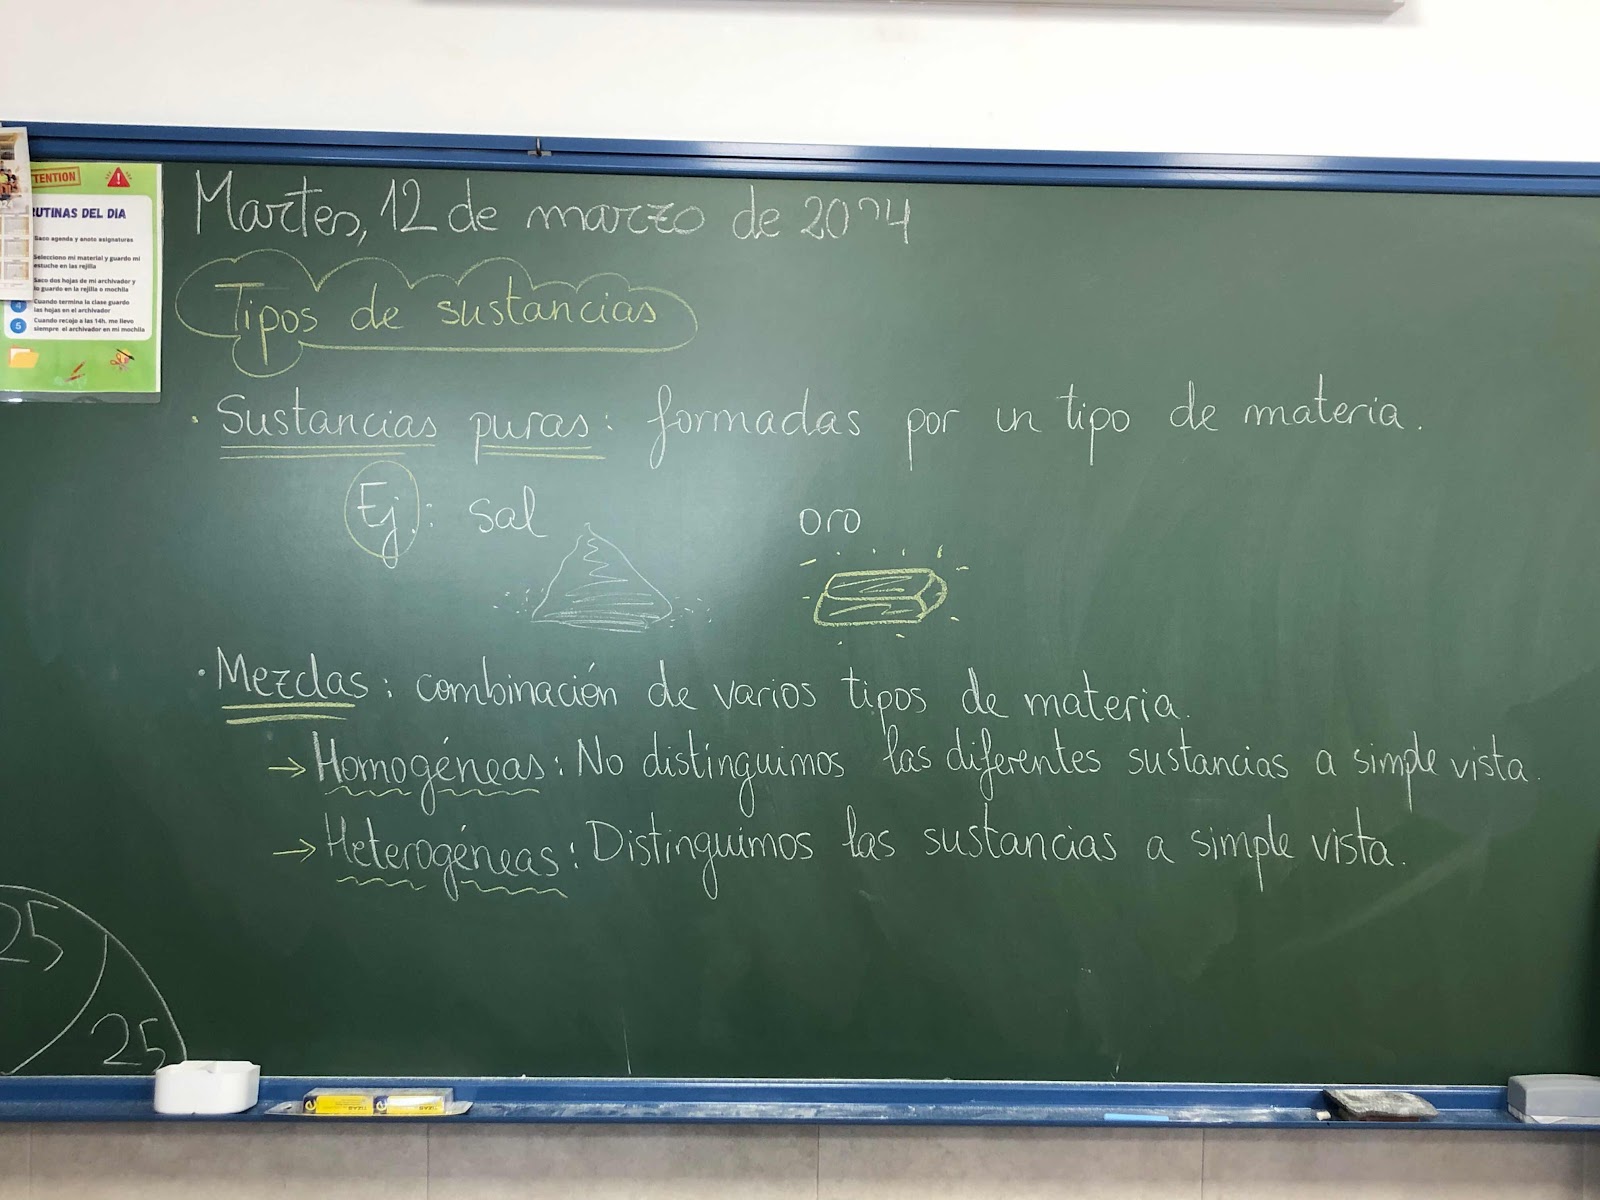 TTENTION
RUTINAS DEL DIA
Saco agenda y anoto asignaturas
Selecciono mi material y guardo mi
estuche en las rejilla
Saco dos hojas de mi archivador y
lo guardo en la rejilla o mochila
4 Cuando termina la clase guardo
las hojas en el archivador
5 Cuando recojo a las 14h. me llevo
siempre el archivador en mi mochila
Martes, 12 de marzo de 2024
Tipos de sustancias
· Sustancias puras: formadas por un tipo de materia.
Ej.: sal oro
· Mezclas: combinación de varios tipos de materia.
→ Homogéneas: No distinguimos las diferentes sustancias a simple vista.
→ Heterogéneas: Distinguimos las sustancias a simple vista.
25
25
TIZAS
TIZAS